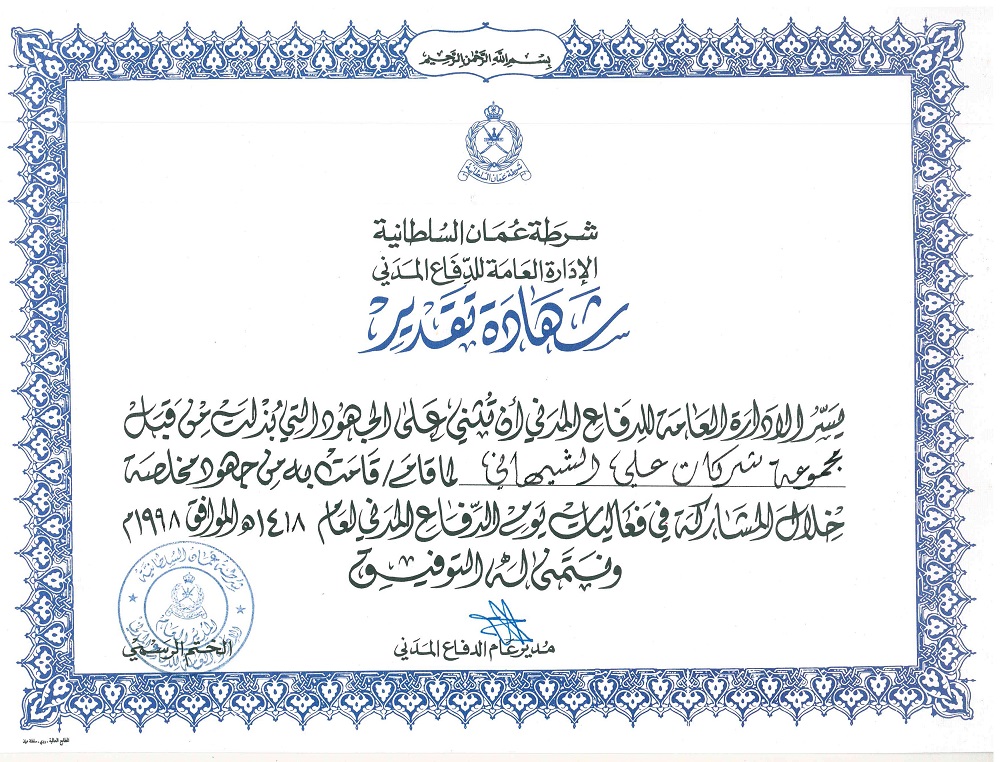 بسم الله الرحمن الرحيم
شرطة عمان السلطانية
شرطة عُمان السُلطانية
الإدارة العامة للدِّفاع المَدَني
شهادة تقدير
يسّر الادارة العامة للدفاع المدني أن تُثني على الجهود التي بُذلت من قبل
مجموعة شركات علي الشيهاني لما قام / قامت به من جهود مخلصة
خلال المشاركة في فعاليات يوم الدّفاع المدني لعام ١٤١٨ه الموافق ١٩٩٨م
ونتمنى له التوفيق
شرطة عمان السلطانية
مدير عام الدفاع المدني
الختم الرسمي